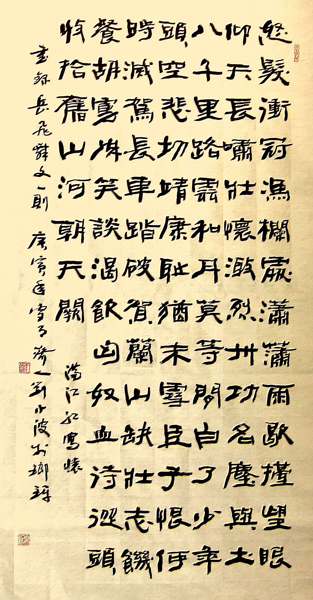 怒髮衝冠憑欄處瀟瀟雨歇擡望眼
仰天長嘯壯懷激烈卅功名塵與土
八千里路雲和月莫等閒白了少年
頭空悲切靖康恥猶未雪臣子恨何
時滅駕長車踏破賀蘭山缺壯志饑
餐胡虜肉笑談渴飲匈奴血待從頭
收拾舊山河朝天闕
滿江紅寫懷
書錄岳飛辭文一則 庚寅年雪月 劉小波於瑯琊